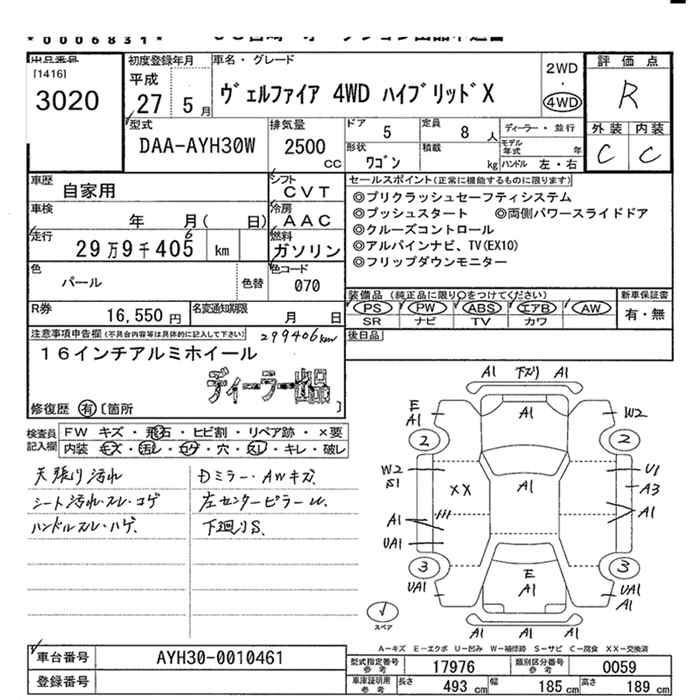 *0006831*
出品番号
[1416]
3020
初度登録年月
平成
27 5月
車名・グレード
ヴェルファイア 4WD ハイブリッドX
2WD
・
4WD
評価点
R
外装 内装
C C
型式
DAA-AYH30W
排気量
2500
CC
ドア 5
定員 8 人
形状 ワゴン
積載 kg
ディーラー・並行
モデル年式 年
ハンドル 左・右
車歴
自家用
シフト
CVT
車検
年 月( 日)
冷房
AAC
走行
29万9千405 km
6
燃料
ガソリン
色
パール
色替
色コード
070
R券
16,550 円
名変通知期限
月 日
セールスポイント(正常に機能するものに限ります)
◎プリクラッシュセーフティシステム
◎プッシュスタート ◎両側パワースライドドア
◎クルーズコントロール
◎アルパインナビ、TV(EX10)
◎フリップダウンモニター
装備品 (純正品に限り○をつけてください)
新車保証書
PS PW ABS エアB AW
SR ナビ TV カワ
有・無
後日品
注意事項申告欄(不具合内容等は具体的に記入して下さい)
299406km
16インチアルミホイール
ディーラー出品
修復歴 有 [箇所 ]
検査員
記入欄
FW キズ・飛石・ヒビ割・リペア跡・×要
内装 キズ・汚レ・コゲ・穴・スレ・キレ・破レ
天張り汚れ
シート汚れ・スレ・コゲ
ハンドルスレ・ハゲ.
Dミラー・AWキズ
左センターピラーU.
下廻りS.
A1 下廻り A1
E
A1
A1
W2
2
2
W2
S1
XX
A1
U1
A3
A1
A1
UA1
3
3
UA1
E
A1
UA1
A1
スペア
A-キズ E-エクボ U-凹み W-補修跡 S-サビ C-腐食 XX-交換済
車台番号
AYH30-0010461
登録番号
型式指定番号
参考
17976
類別区分番号
参考
0059
車庫証明用
参考
長さ 493 cm
幅 185 cm
高さ 189 cm